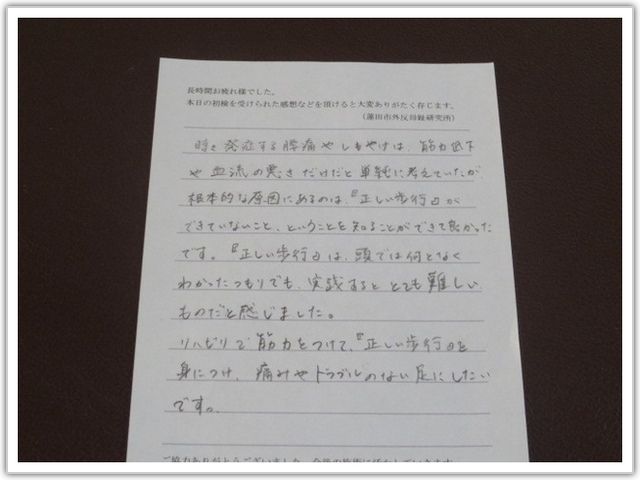 長時間お疲れ様でした。
本日の初検を受けられた感想などを頂けると大変ありがたく存じます。
（蓮田市外反母趾研究所）
時々発症する腰痛やしもやけは、筋力低下
や血流の悪さだけだと単純に考えていたが、
根本的な原因にあるのは、『正しい歩行』が
できていないこと、ということを知ることができて良かった
です。『正しい歩行』は、頭では何となく
わかったつもりでも、実践するととても難しい
ものだと感じました。
リハビリで筋力をつけて、『正しい歩行』を
身につけ、痛みやトラブルのない足にしたい
です。
ご協力ありがとうございました。今後の施術に活かしていきます。